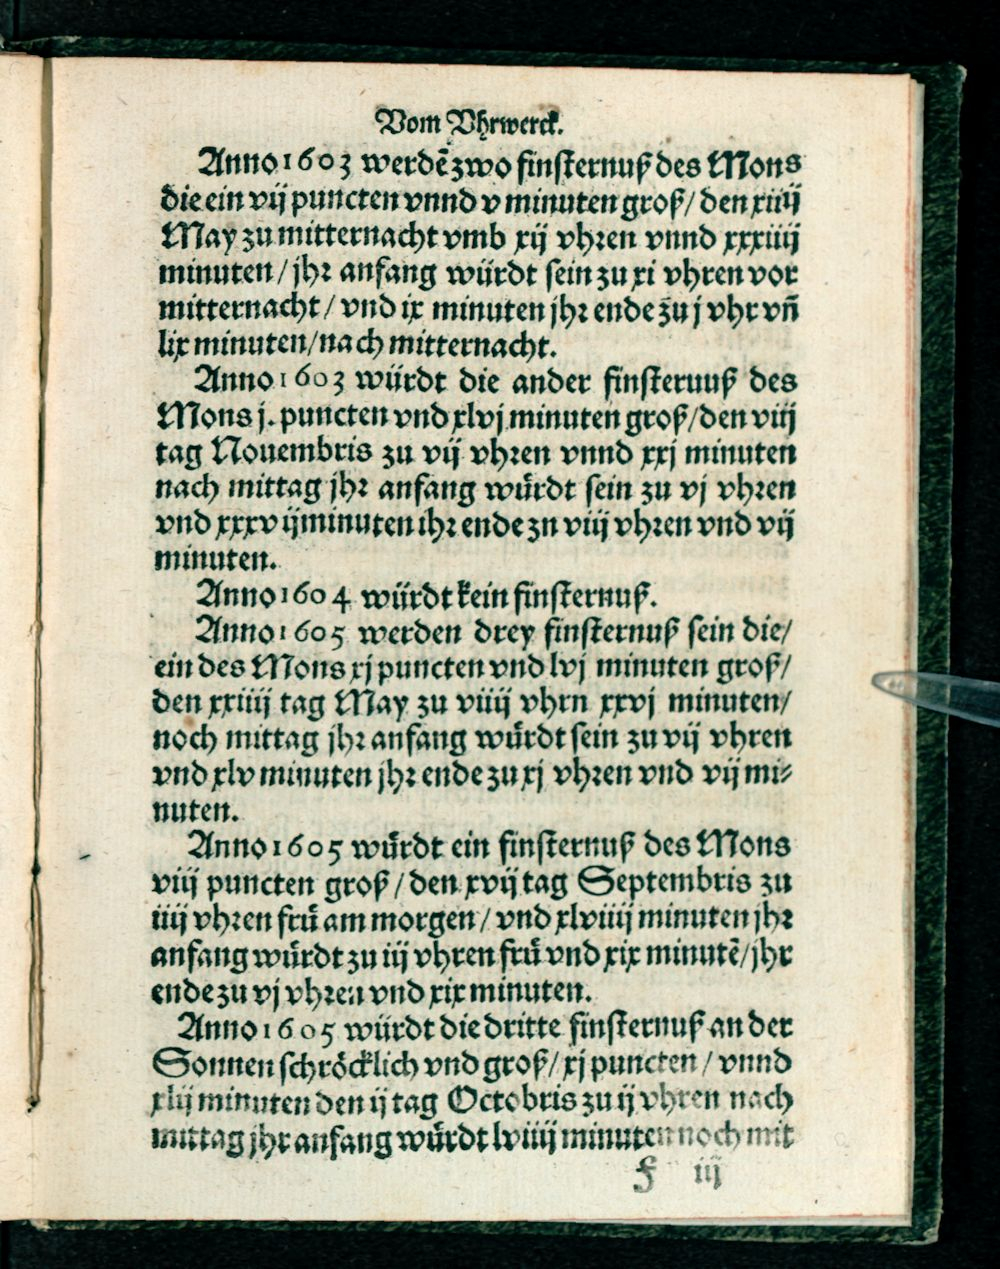 Vom Vhrwerck.
Anno 1603 werdē zwo finsternuß des Mons
die ein vij puncten vnnd v minuten groß / den xiiij
May zu mitternacht vmb xij vhren vnnd xxxiiij
minuten / jhr anfang würdt sein zu xi vhren vor
mitternacht / vnd ix minuten jhr ende zu j vhr vñ
lix minuten / nach mitternacht.
Anno 1603 würdt die ander finsteruuß des
Mons j. puncten vnd xlvj minuten groß / den viij
tag Nouembris zu vij vhren vnnd xxj minuten
nach mittag jhr anfang würdt sein zu vj vhren
vnd xxxvij minuten ihr ende zn viij vhren vnd vij
minuten.
Anno 1604 würdt kein finsternuß.
Anno 1605 werden drey finsternuß sein die /
ein des Mons xj puncten vnd lvj minuten groß /
den xxiiij tag May zu viiij vhrn xxvj minuten /
noch mittag jhr anfang würdt sein zu vij vhren
vnd xlv minuten jhr ende zu xj vhren vnd vij mi⸗
nuten.
Anno 1605 würdt ein finsternuß des Mons
viij puncten groß / den xvij tag Septembris zu
iiij vhren frü am morgen / vnd xlviiij minuten jhr
anfang würdt zu iij vhren frü vnd xix minutē / jhr
ende zu vj vhren vnd xix minuten.
Anno 1605 würdt die dritte finsternuß an der
Sonnen schröcklich vnd groß / xj puncten / vnnd
xlij minuten den ij tag Octobris zu ij vhren nach
mittag jhr anfang würdt lviiij minuten noch mit
f iij